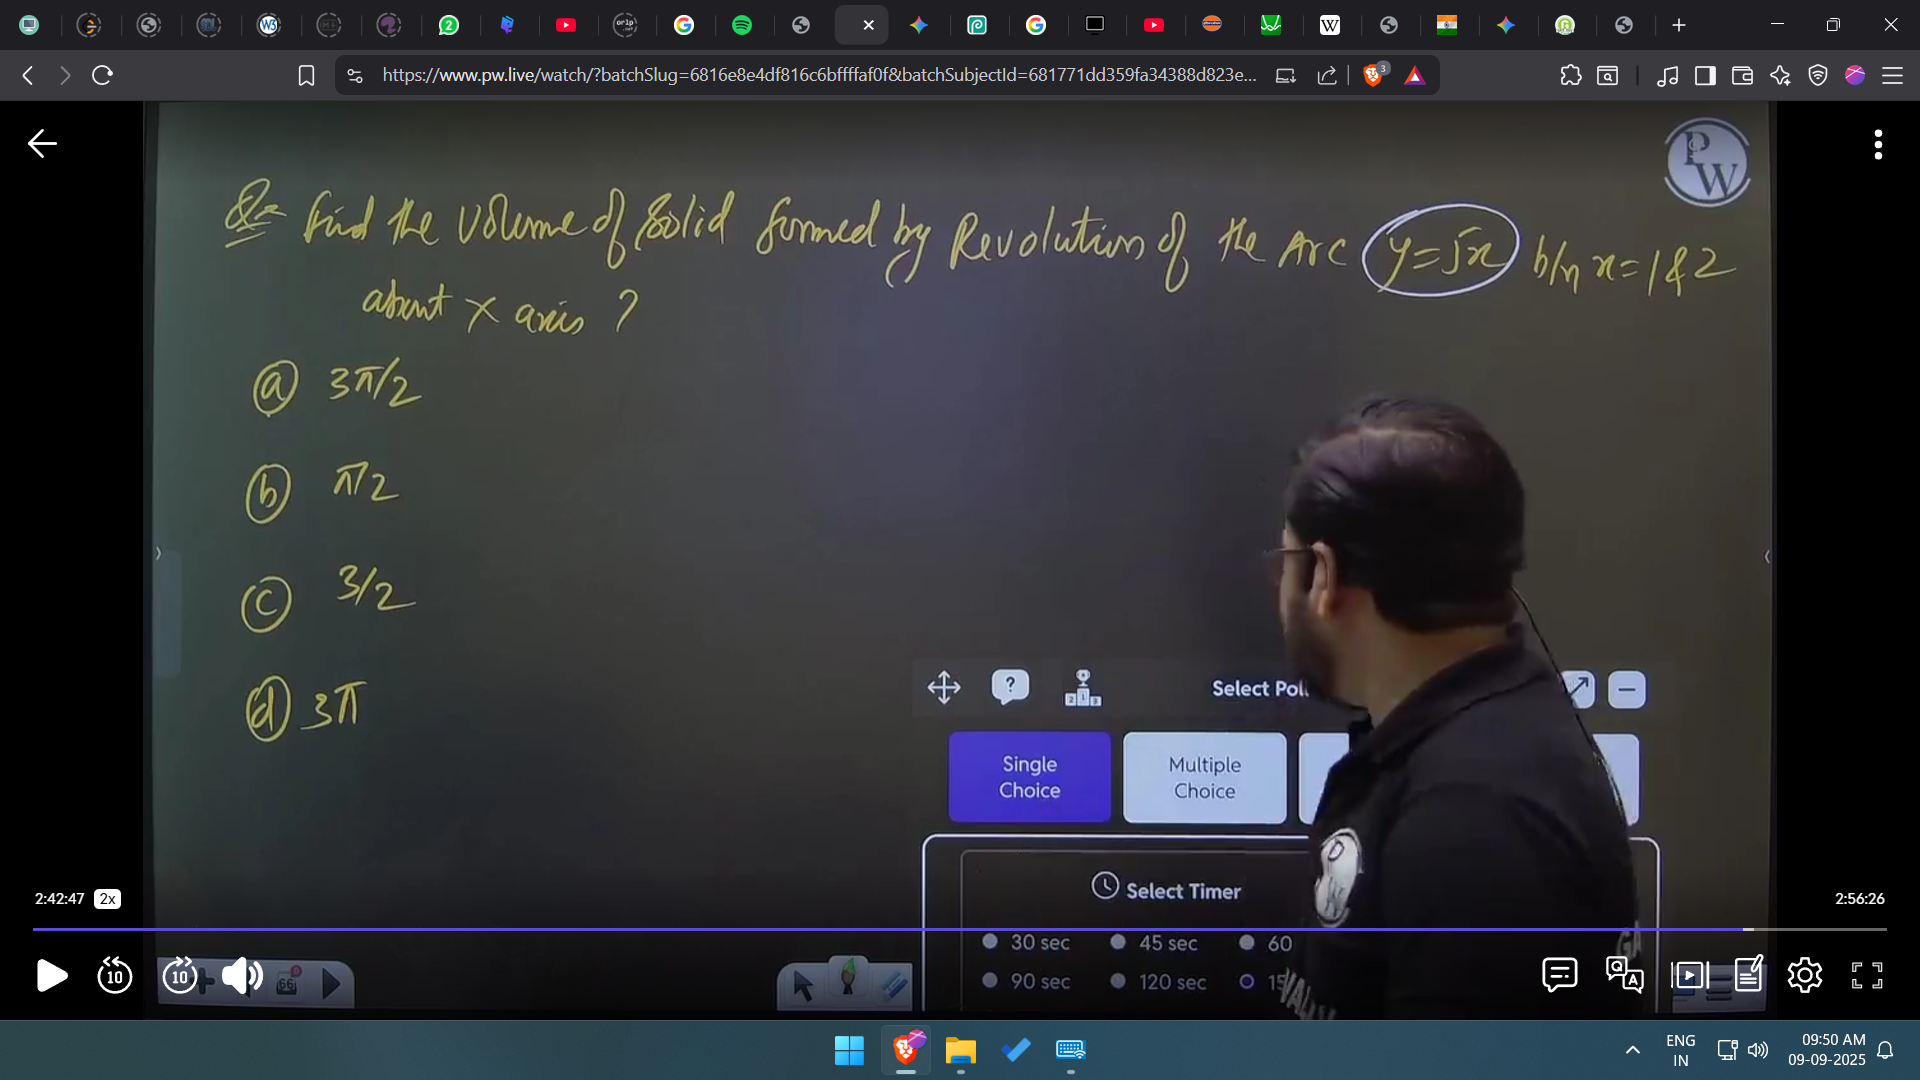 https://www.pw.live/watch/?batchSlug=6816e8e4df816c6bffffaf0f&batchSubjectId=681771dd359fa34388d823e...
3
PW
Q= Find the Volume of Solid formed by Revolution of the Arc y=√x b/n x=1&2
about x axis ?
(a) 3π/2
(b) π/2
(c) 3/2
(d) 3π
Select Poll
Single Choice
Multiple Choice
Select Timer
30 sec 45 sec 60
90 sec 120 sec 15
2:42:47 2x 2:56:26
10 10
66
ENG
IN
09:50 AM
09-09-2025